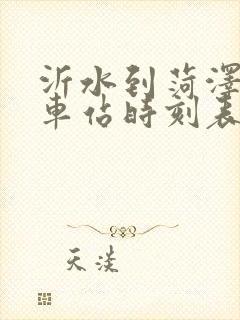 沂水到菏澤
車佔時刻表
天淡